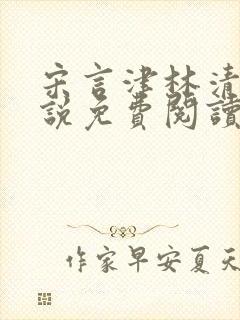 宋言津林清
說免費閱讀
作家早安夏天